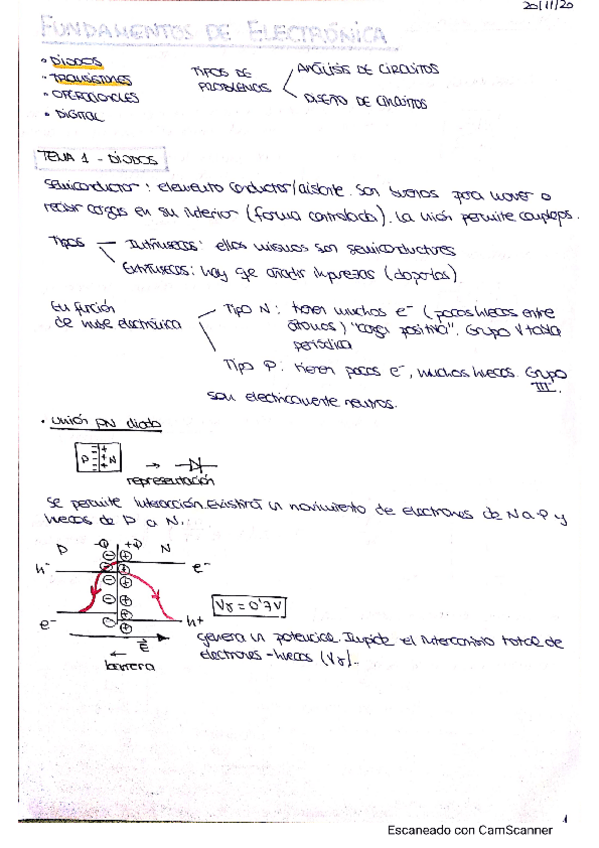 20/11/20
FUNDAMENTOS DE ELECTRÓNICA
• DIODOS
• TRANSISTORES
• OPERACIONALES
• DIGITAL
TIPOS DE PROBLEMAS
ANÁLISIS DE CIRCUITOS
DISEÑO DE CIRCUITOS
TEMA 1 - DIODOS
Semiconductor: elemento conductor/aislante. Son buenos para mover o
recibir cargas en su interior (forma controlada). La unión permite
Tipos
Intrínsecos: ellos mismos son semiconductores
Extrínsecos: hay que añadir impurezas (doparlos).
En función
de nube electrónica
Tipo N: tienen muchos e⁻ (pocos huecos entre
átomos) "carga positiva". Grupo V tabla
periódica
Tipo P: tienen pocos e⁻, muchos huecos. Grupo
III.
son eléctricamente neutros.
• Unión PN diodo
P - - - + + + N
→
representación
Se permite interacción. Existirá un movimiento de electrones de N a P y
huecos de P a N.
P -Q +Q N
h⁻ e⁻
e⁻ h+
Vγ = 0'7V
E
← barrera
genera un potencial. Impide el intercambio total de
electrones-huecos (Vγ).
1
Escaneado con CamScanner